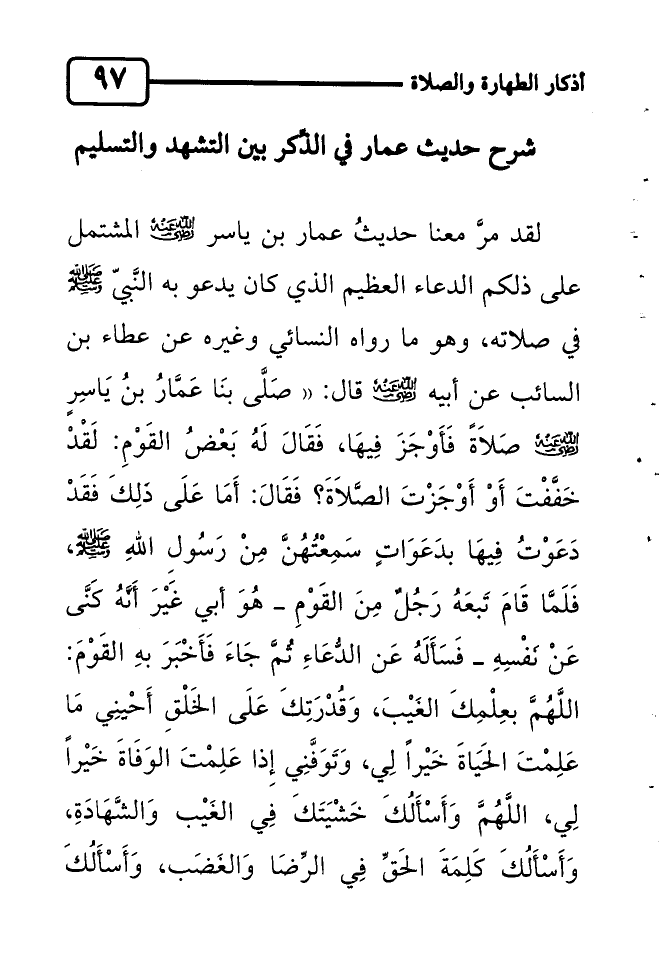 أذكار الطهارة والصلاة ٩٧
شرح حديث عمار في الذَّكر بين التشهد والتسليم
لقد مرَّ معنا حديثُ عمار بن ياسر رضي الله عنه المشتمل
على ذلكم الدعاء العظيم الذي كان يدعو به النَّبيّ ﷺ
في صلاته، وهو ما رواه النسائي وغيره عن عطاء بن
السائب عن أبيه رضي الله عنه قال: « صَلَّى بنَا عَمَّارُ بنُ يَاسِرٍ
رضي الله عنه صَلاَةً فَأَوْجَزَ فِيهَا، فَقَالَ لَهُ بَعْضُ القَوْمِ: لَقَدْ
خَفَّفْتَ أَوْ أَوْجَزْتَ الصَّلاَةَ؟ فَقَالَ: أَمَا عَلَى ذَلِكَ فَقَدْ
دَعَوْتُ فِيهَا بدَعَوَاتٍ سَمِعْتُهُنَّ مِنْ رَسُولِ اللهِ ﷺ،
فَلَمَّا قَامَ تَبعَهُ رَجُلٌ مِنَ القَوْمِ ـ هُوَ أبي غَيْرَ أَنَّهُ كَنَّى
عَنْ نَفْسِهِ ـ فَسَأَلَهُ عَن الدُّعَاءِ ثُمَّ جَاءَ فَأَخْبَرَ بهِ القَوْمَ:
اللَّهُمَّ بعِلْمِكَ الغَيْبَ، وَقُدْرَتِكَ عَلَى الخَلْقِ أَحْينِي مَا
عَلِمْتَ الحَيَاةَ خَيْراً لِي، وَتَوَفَّنِي إذَا عَلِمْتَ الوَفَاةَ خَيْراً
لِي، اللَّهُمَّ وَأَسْأَلُكَ خَشْيَتَكَ فِي الغَيْب وَالشَّهَادَةِ،
وَأَسْأَلُكَ كَلِمَةَ الحَقِّ فِي الرِّضَا وَالغَضَب، وَأَسْأَلُكَ